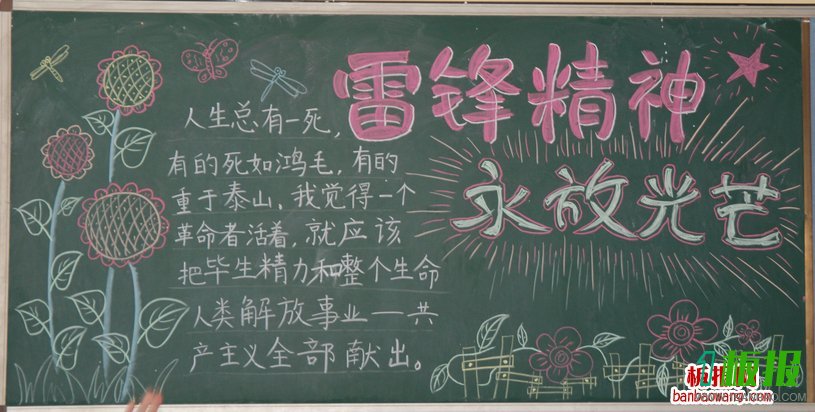 雷锋精神
永放光芒
人生总有一死，
有的死如鸿毛，有的
重于泰山，我觉得一个
革命者活着，就应该
把毕生精力和整个生命
人类解放事业——共
产主义全部献出。
板报